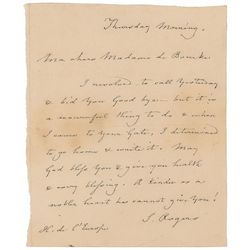 Thursday Morning.
Ma chere Madame de
I resolved to call Yesterday
& bid You Good bye — but it is
a sorrowful thing to do & when
I came to your Gate, I determined
to go home & write it. May
God bless You & give you health
& every blessing. A kinder or a
nobler heart he cannot give You!
S. Rogers
H. de l'Europe